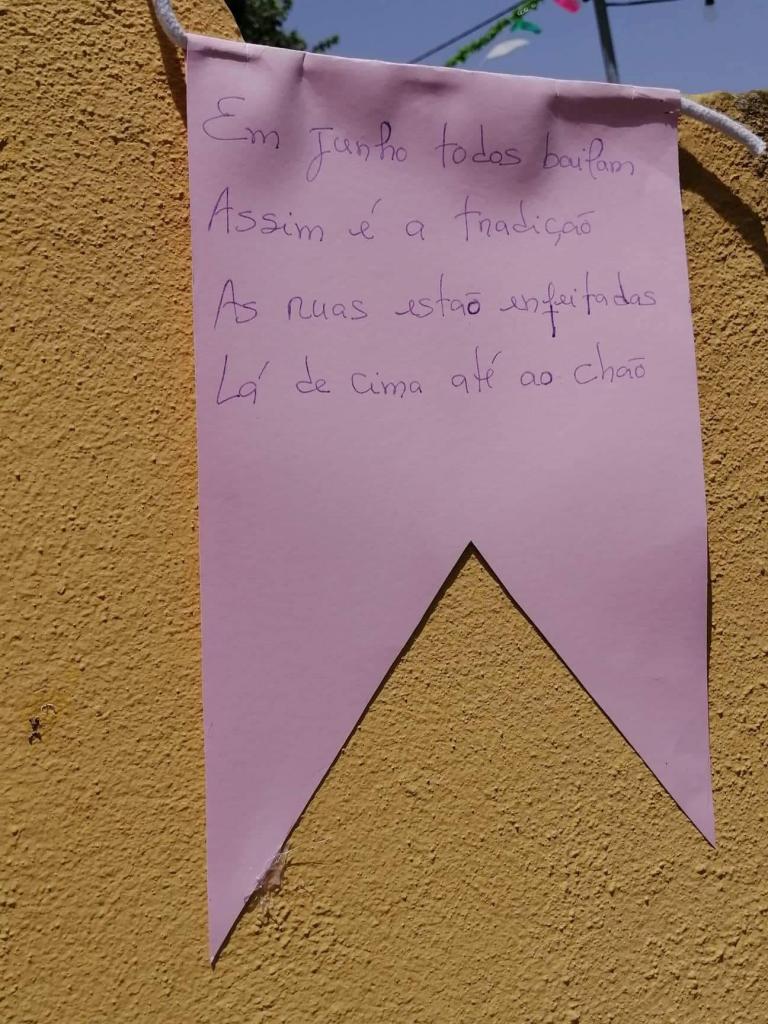 Em Junho todos bailam
Assim é a tradição
As ruas estaõ enfeitadas
Lá de cima até ao chaõ